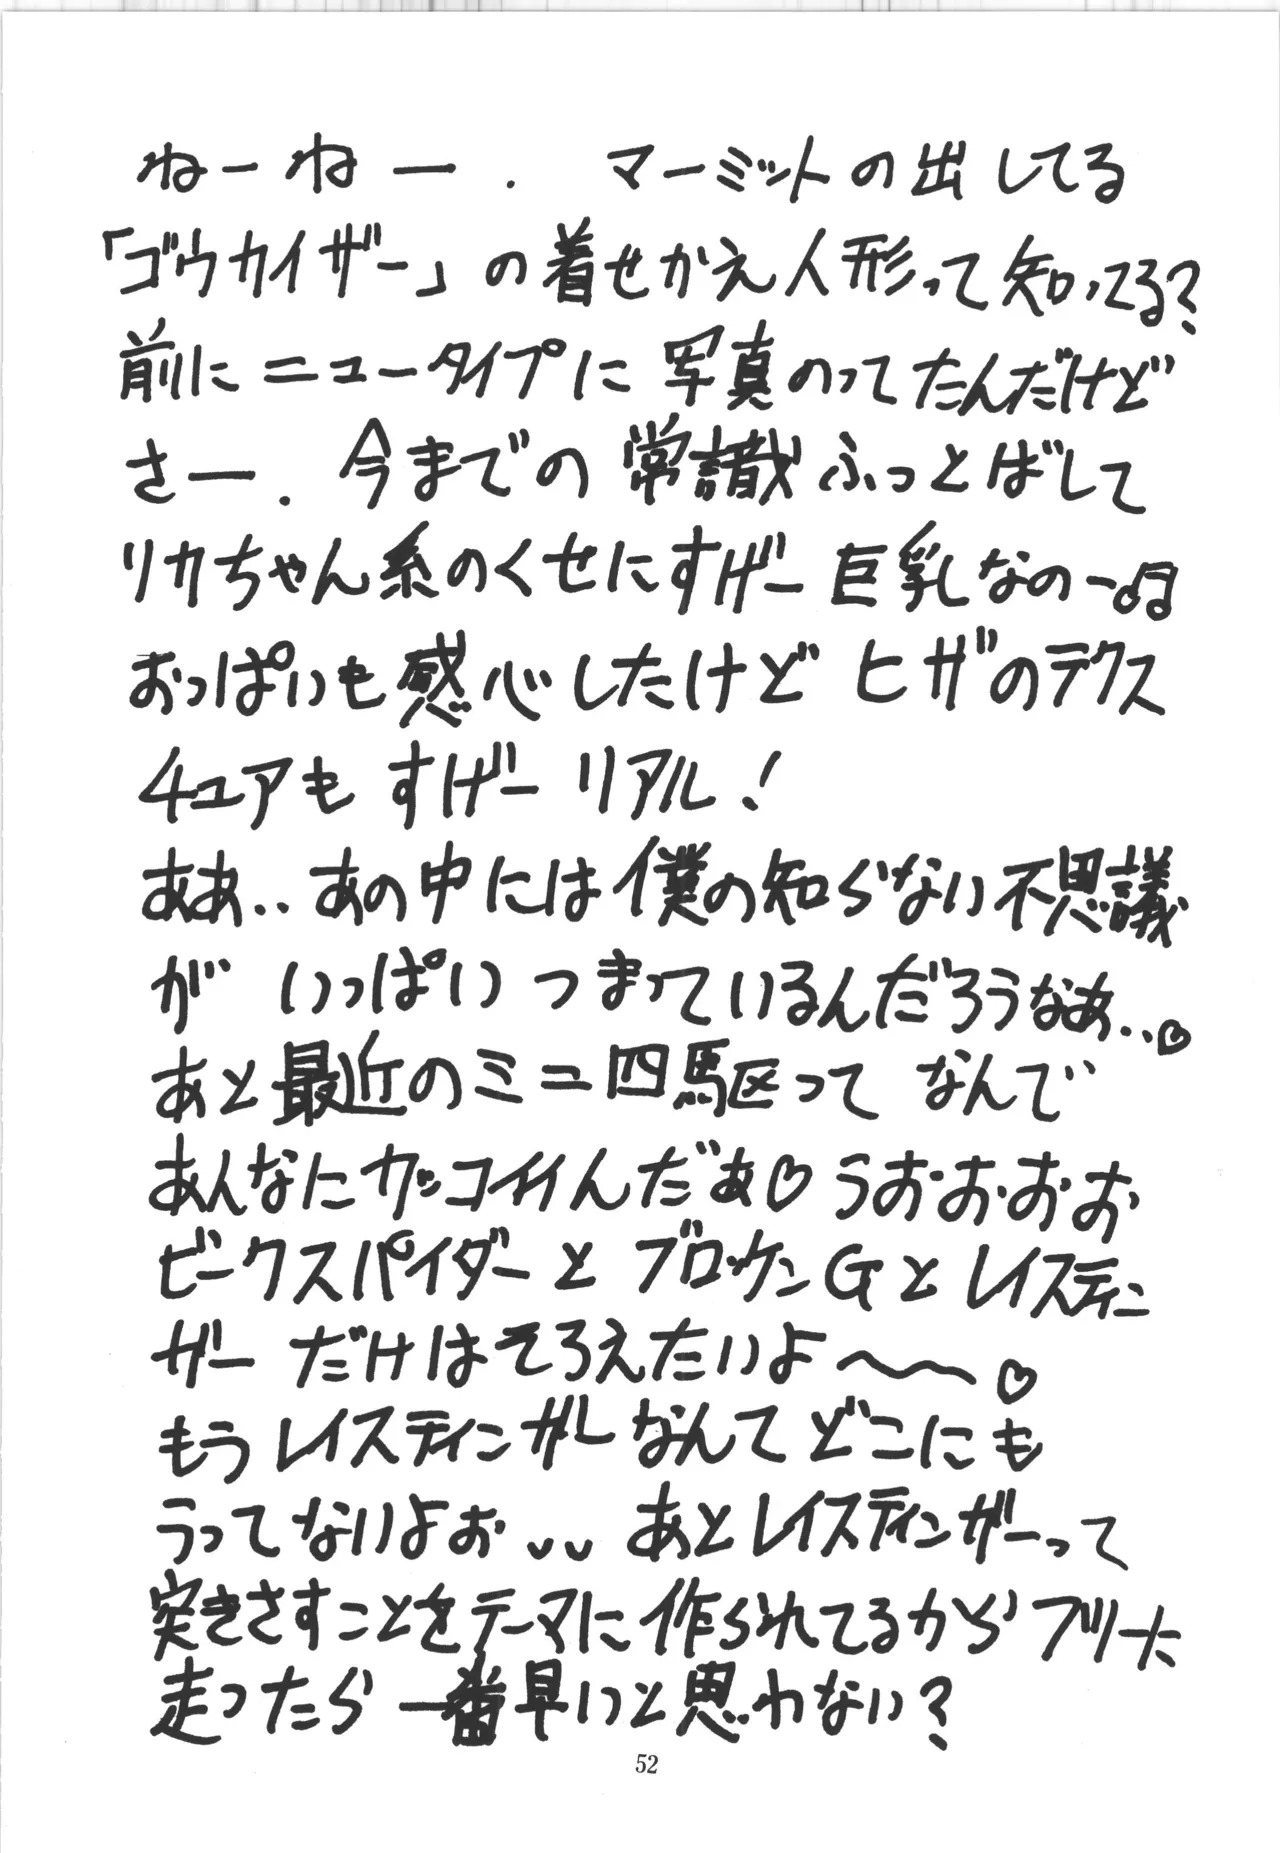 ねーねー. マーミットの出してる
「ゴウカイザー」の着せかえ人形って知ってる?
前にニュータイプに写真のってたんだけど
さー. 今までの常識ふっとばして
リカちゃん系のくせにすげー巨乳なのー♫
おっぱいも感心したけどヒザのテクス
チュアもすげーリアル!
ああ..あの中には僕の知らない不思議
がいっぱいつまっているんだろうなぁ..♡
あと最近のミニ四駆ってなんで
あんなにカッコイイんだぁ♡うお・お・お・お
ビークスパイダーとブロッケンGとレイスティン
ガーだけはそろえたいよ〜〜♡
もうレイスティンガーなんてどこにも
うってないよぉ、、あとレイスティンガーって
突きさすことをテーマに作られてるから
走ったら一番早いと思わない?
52